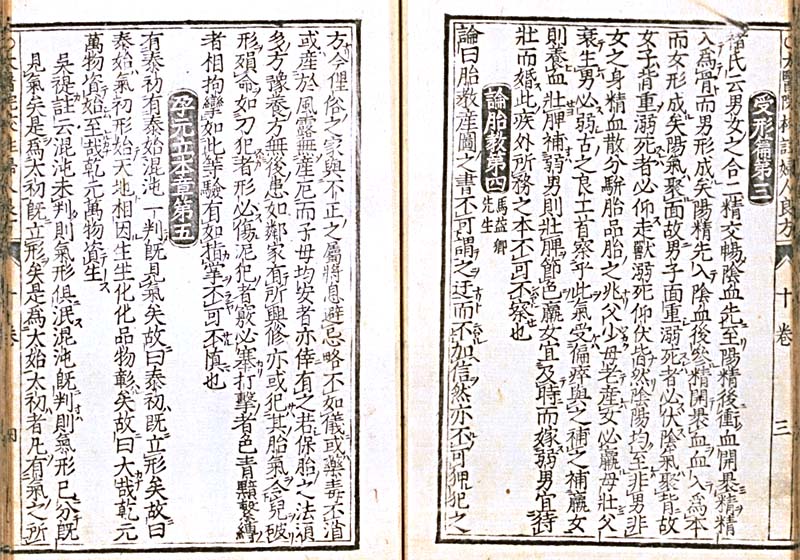 受形篇第三
褚氏云男女之合二精交暢陰血先至陽精後衝血開裹精精
入為骨而男形成矣陽精先入陰血後參精開裹血血入為本
而女形成矣陽氣聚面故男子面重溺死者必伏陰氣聚背故
女子背重溺死者必仰走獸溺死仰伏皆然陰陽均至非男非
女之身精血散分駢胎品胎之兆父少母老產女必羸母壯父
衰生男必弱古之良工首察乎此氣受偏瘁與之補之補羸女
則養血壯脾補弱男則壯脾節色羸女宜及時而嫁弱男宜待
壯而婚此疾外所務之本不可不察也
論胎教第四 馬益卿先生
論曰胎教產圖之書不可謂之迂而不加信然亦不可狎犯之
十卷 三
方今俚俗之家與不正之屬將息避忌略不如儀或藥毒不消
或產於風露無產厄而子母均安者亦倖有之若保胎之法須
多方豫養方無後患如鄰家有所興修亦或犯其胎氣令兒破
形殞命如刀犯者形必傷泥犯者竅必塞打擊者色青黯繫縛
者相拘攣如此等驗有如指掌不可不慎也
孕元立本章第五
有泰初有泰始混沌一判既見氣矣故曰泰初既立形矣故曰
泰始氣初形始天地相因生生化化品物彰矣故曰大哉乾元
萬物資始至哉乾元萬物資生
吳禔註云混沌未判則氣形俱泯混沌既判則氣形已分既
見氣矣是為太初既立形矣是為大始太初者凡有氣之所
十卷